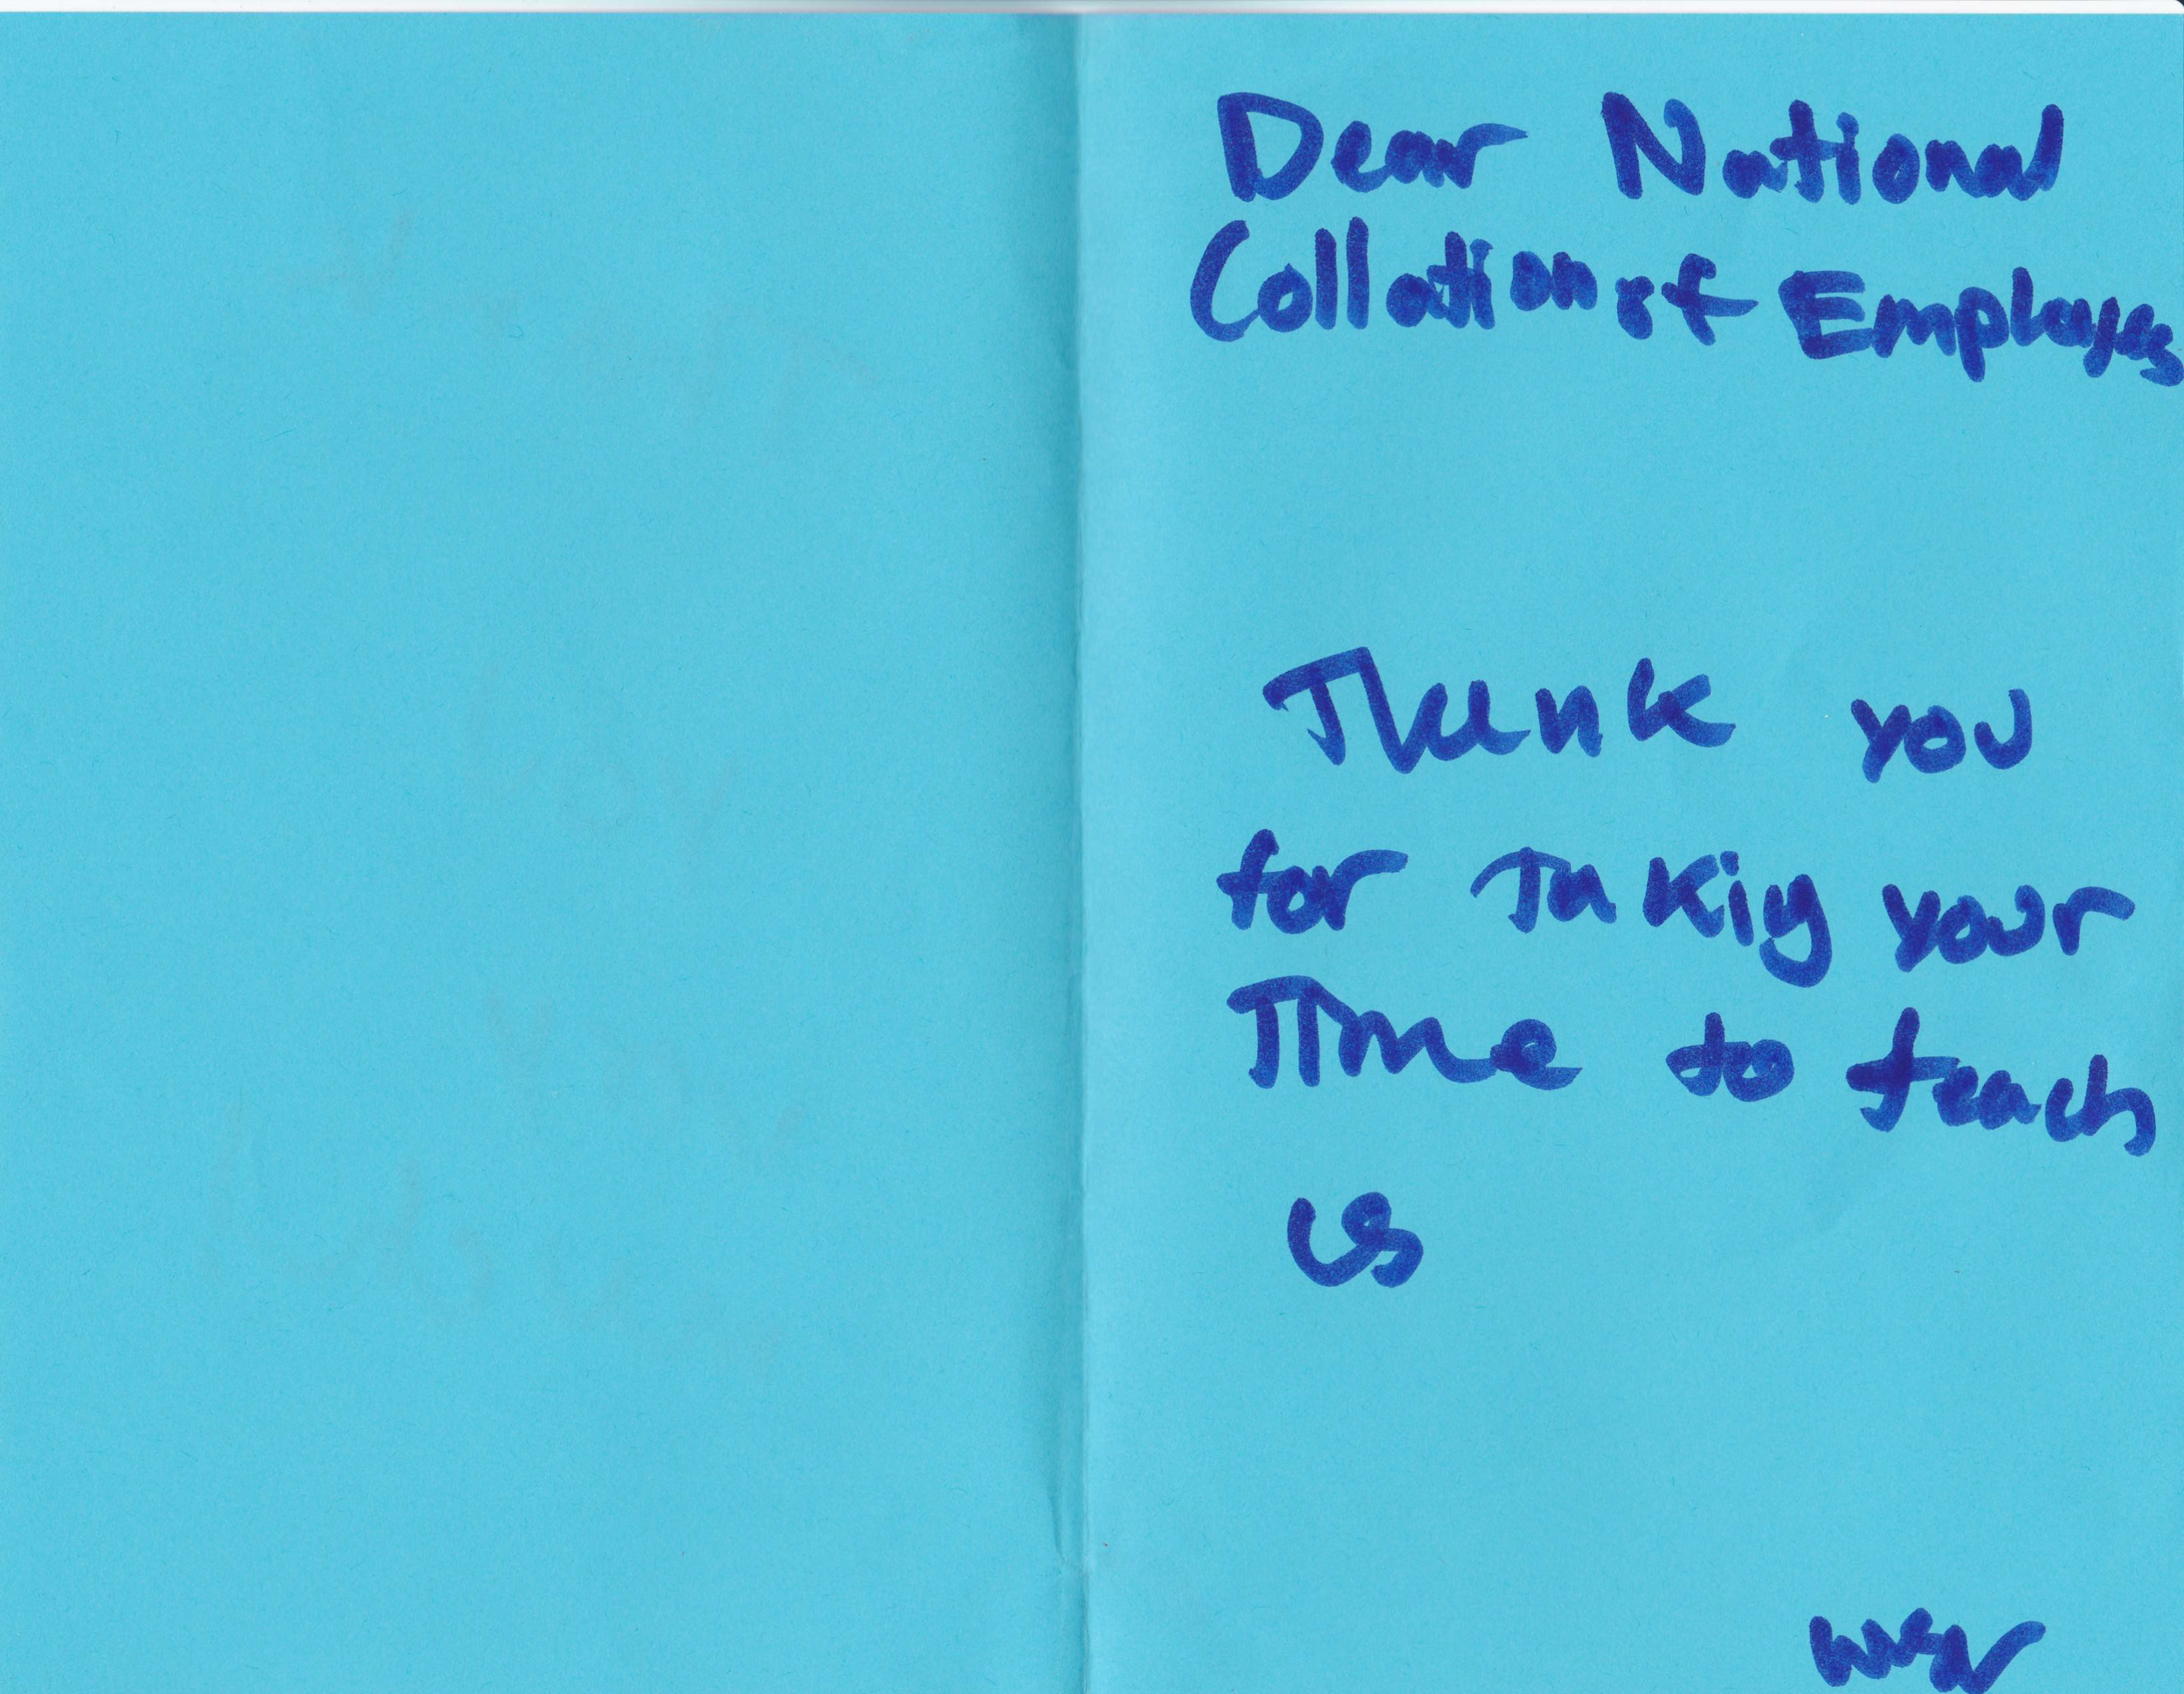 Dear National
Collation of Employes
Thank you
for Takig your
Time to teach
us